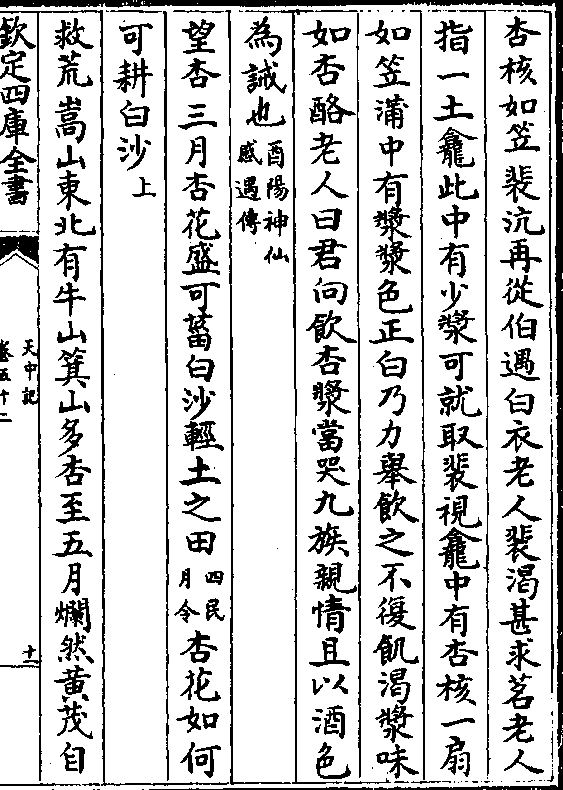 杏核如笠裴沆再從伯遇白衣老人裴渴甚求茗老人
指一土龕此中有少漿可就取裴視龕中有杏核一扇
如笠滿中有漿漿色正白乃力舉飲之不復飢渴漿味
如杏酪老人曰君向飲杏漿當哭九族親情且以酒色
為誡也酉陽神仙感遇傳
望杏三月杏花盛可菑白沙輕土之田四民月令杏花如何
可耕白沙上
救荒嵩山東北有牛山箕山多杏至五月爛然黄茂自
欽定四庫全書
天中記
卷五十二
十一